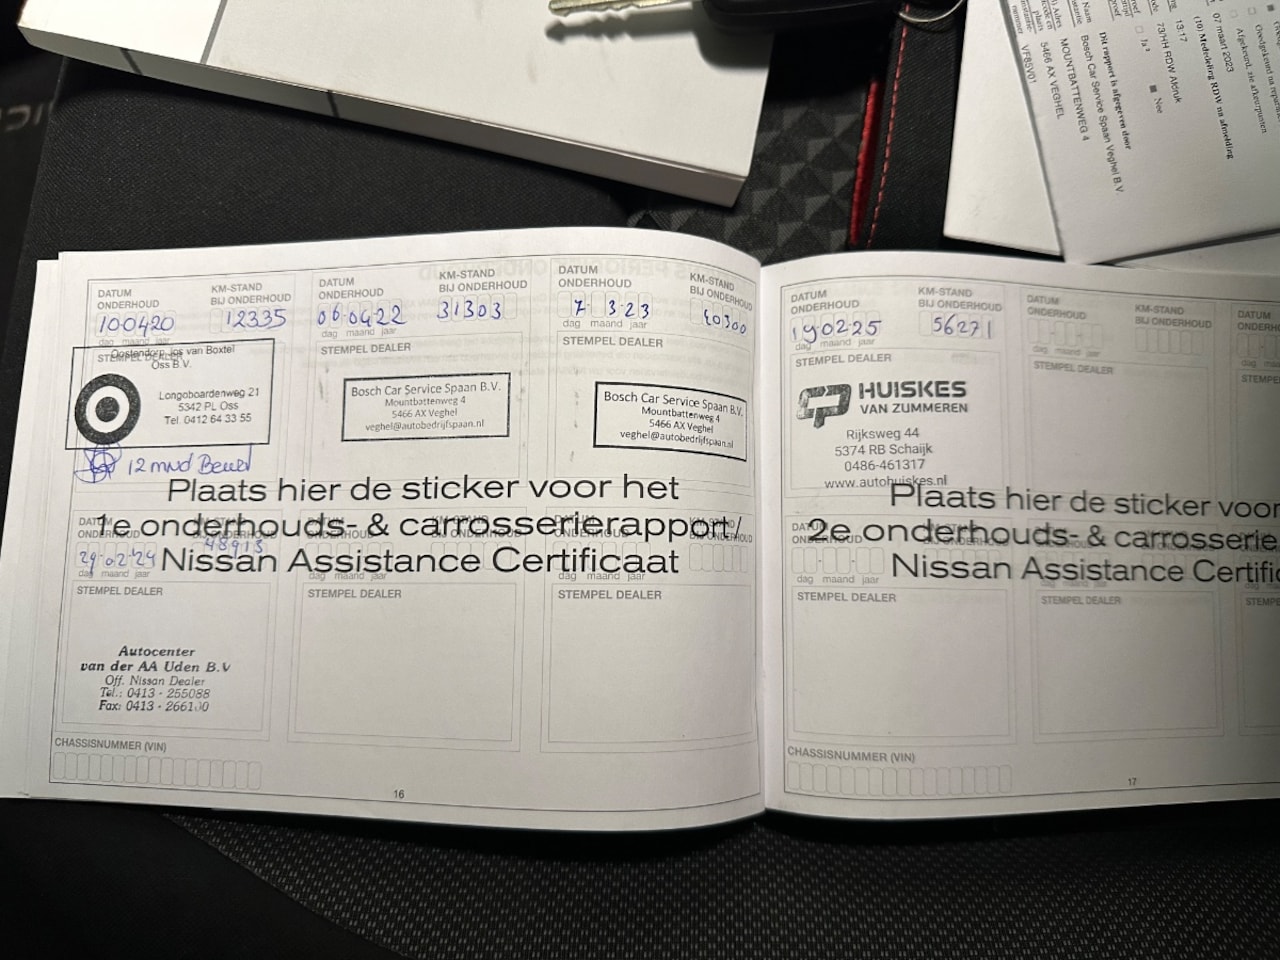 Goedgekeurd na reparatie
Afgekeurd, zie afkeurpunten
07 maart 2023
(10) Mededeling RDW na afmelding
13:17
73/HH RDW Afdruk
Ja
Nee
Dit rapport is afgegeven door
Naam
Bosch Car Service Spaan Veghel B.V.
MOUNTBATTENWEG 4
5466 AX VEGHEL
VF85V01
DATUM
ONDERHOUD
KM-STAND
BIJ ONDERHOUD
100420
12335
dag maand jaar
STEMPEL DEALER
Oostendorp Jos van Boxtel
Oss B.V.
Longobardenweg 21
5342 PL Oss
Tel. 0412 64 33 55
12 mnd Beurt
DATUM
ONDERHOUD
KM-STAND
BIJ ONDERHOUD
06.0422
31303
dag maand jaar
STEMPEL DEALER
Bosch Car Service Spaan B.V.
Mountbattenweg 4
5466 AX Veghel
veghel@autobedrijfspaan.nl
DATUM
ONDERHOUD
KM-STAND
BIJ ONDERHOUD
7 3.23
40300
dag maand jaar
STEMPEL DEALER
Bosch Car Service Spaan B.V.
Mountbattenweg 4
5466 AX Veghel
veghel@autobedrijfspaan.nl
Plaats hier de sticker voor het
1e onderhouds- & carrosserierapport /
Nissan Assistance Certificaat
DATUM
ONDERHOUD
48913
29.02.24
dag maand jaar
STEMPEL DEALER
Autocenter
van der AA Uden B.V
Off. Nissan Dealer
Tel.: 0413 - 255088
Fax: 0413 - 266100
ONDERHOUD
dag maand jaar
STEMPEL DEALER
DATUM
ONDERHOUD
KM-STAND
BIJ ONDERHOUD
dag maand jaar
STEMPEL DEALER
CHASSISNUMMER (VIN)
16
DATUM
ONDERHOUD
KM-STAND
BIJ ONDERHOUD
190225
56271
dag maand jaar
STEMPEL DEALER
HUISKES
VAN ZUMMEREN
Rijksweg 44
5374 RB Schaijk
0486-461317
www.autohuiskes.nl
DATUM
ONDERHOUD
KM-STAND
BIJ ONDERHOUD
dag maand jaar
STEMPEL DEALER
Plaats hier de sticker voor
2e onderhouds- & carrosserie
Nissan Assistance Certific
DATUM
ONDERHOUD
dag maand jaar
STEMPEL DEALER
STEMPEL DEALER
CHASSISNUMMER (VIN)
17